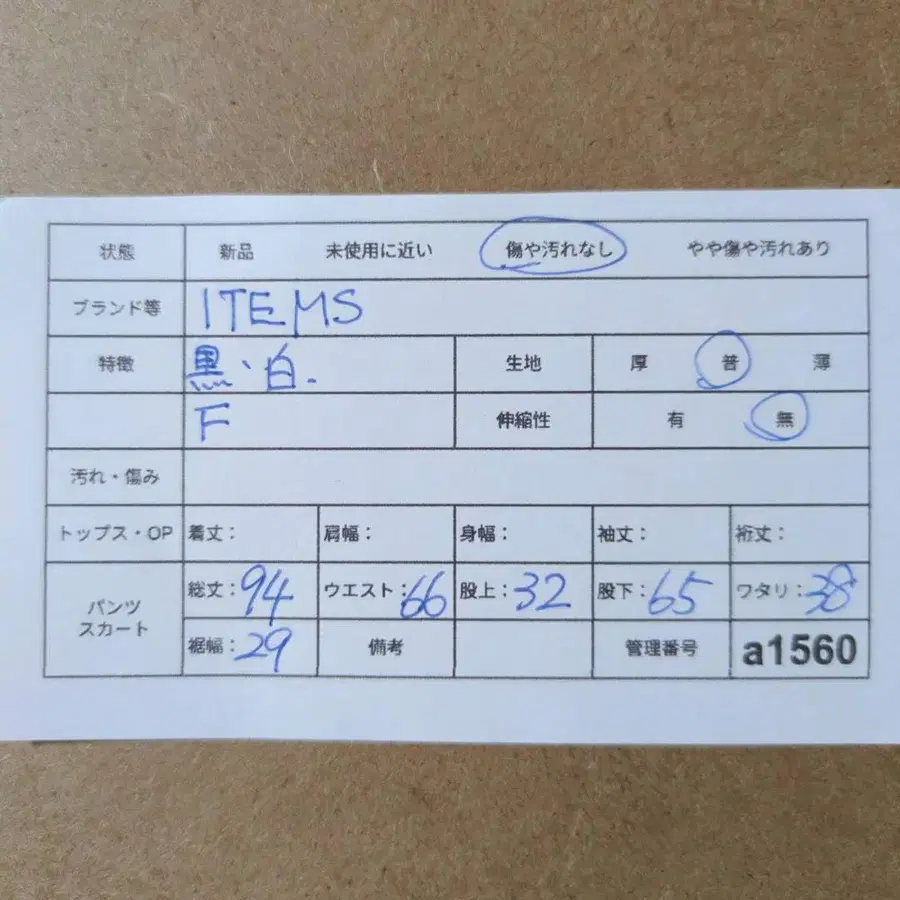 状態 新品 未使用に近い 傷や汚れなし やや傷や汚れあり
ブランド等 ITEMS
特徴 黒、白. 生地 厚 普 薄
F 伸縮性 有 無
汚れ・傷み
トップス・OP 着丈： 肩幅： 身幅： 袖丈： 裄丈：
パンツ スカート 総丈：94 ウエスト：66 股上：32 股下：65 ワタリ：38
裾幅：29 備考 管理番号 a1560